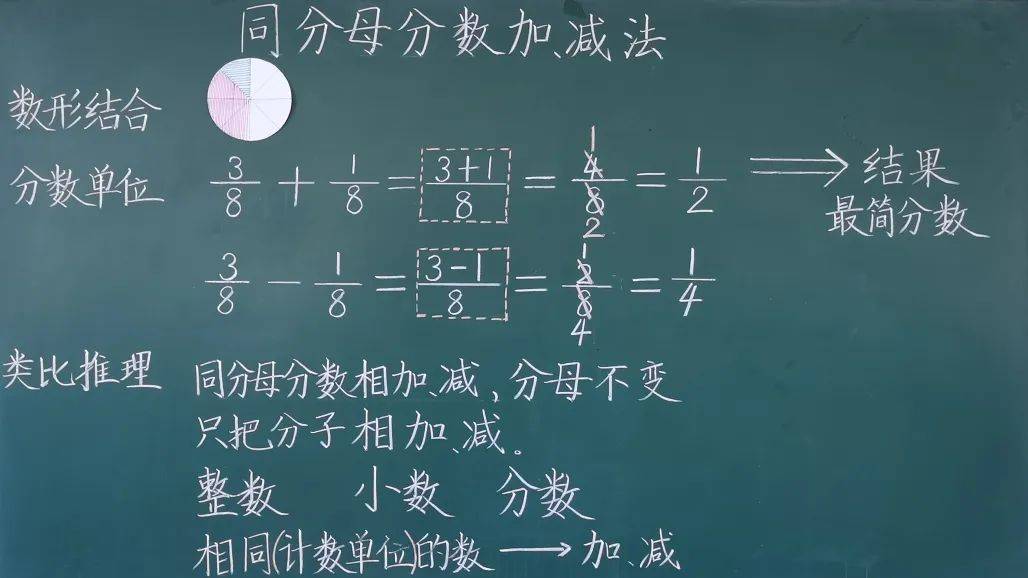 同分母分数加、减法
数形结合
分数单位
3/8 + 1/8 = 3+1/8 = 4/8 1 2 = 1/2 ⟹ 结果
最简分数
3/8 - 1/8 = 3-1/8 = 2/8 1 4 = 1/4
类比推理
同分母分数相加、减,分母不变
只把分子相加、减。
整数 小数 分数
相同(计数单位)的数 → 加、减